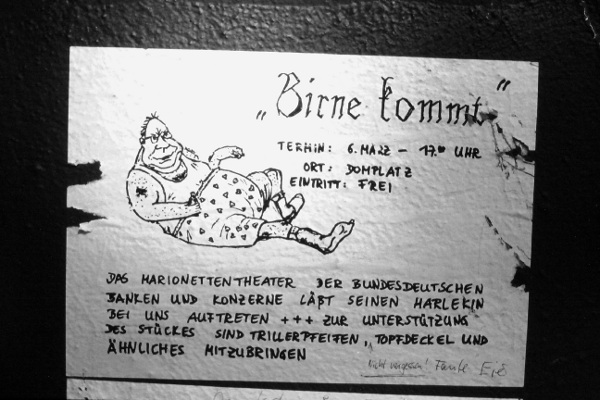 „Birne kommt“
TERMIN: 6. MÄRZ – 17.00 UHR
ORT: DOMPLATZ
EINTRITT: FREI
DAS MARIONETTENTHEATER DER BUNDESDEUTSCHEN
BANKEN UND KONZERNE LÄßT SEINEN HARLEKIN
BEI UNS AUFTRETEN +++ ZUR UNTERSTÜTZUNG
DES STÜCKES SIND TRILLERPFEIFEN, TOPFDECKEL UND
ÄHNLICHES MITZUBRINGEN
Nicht vergessen!